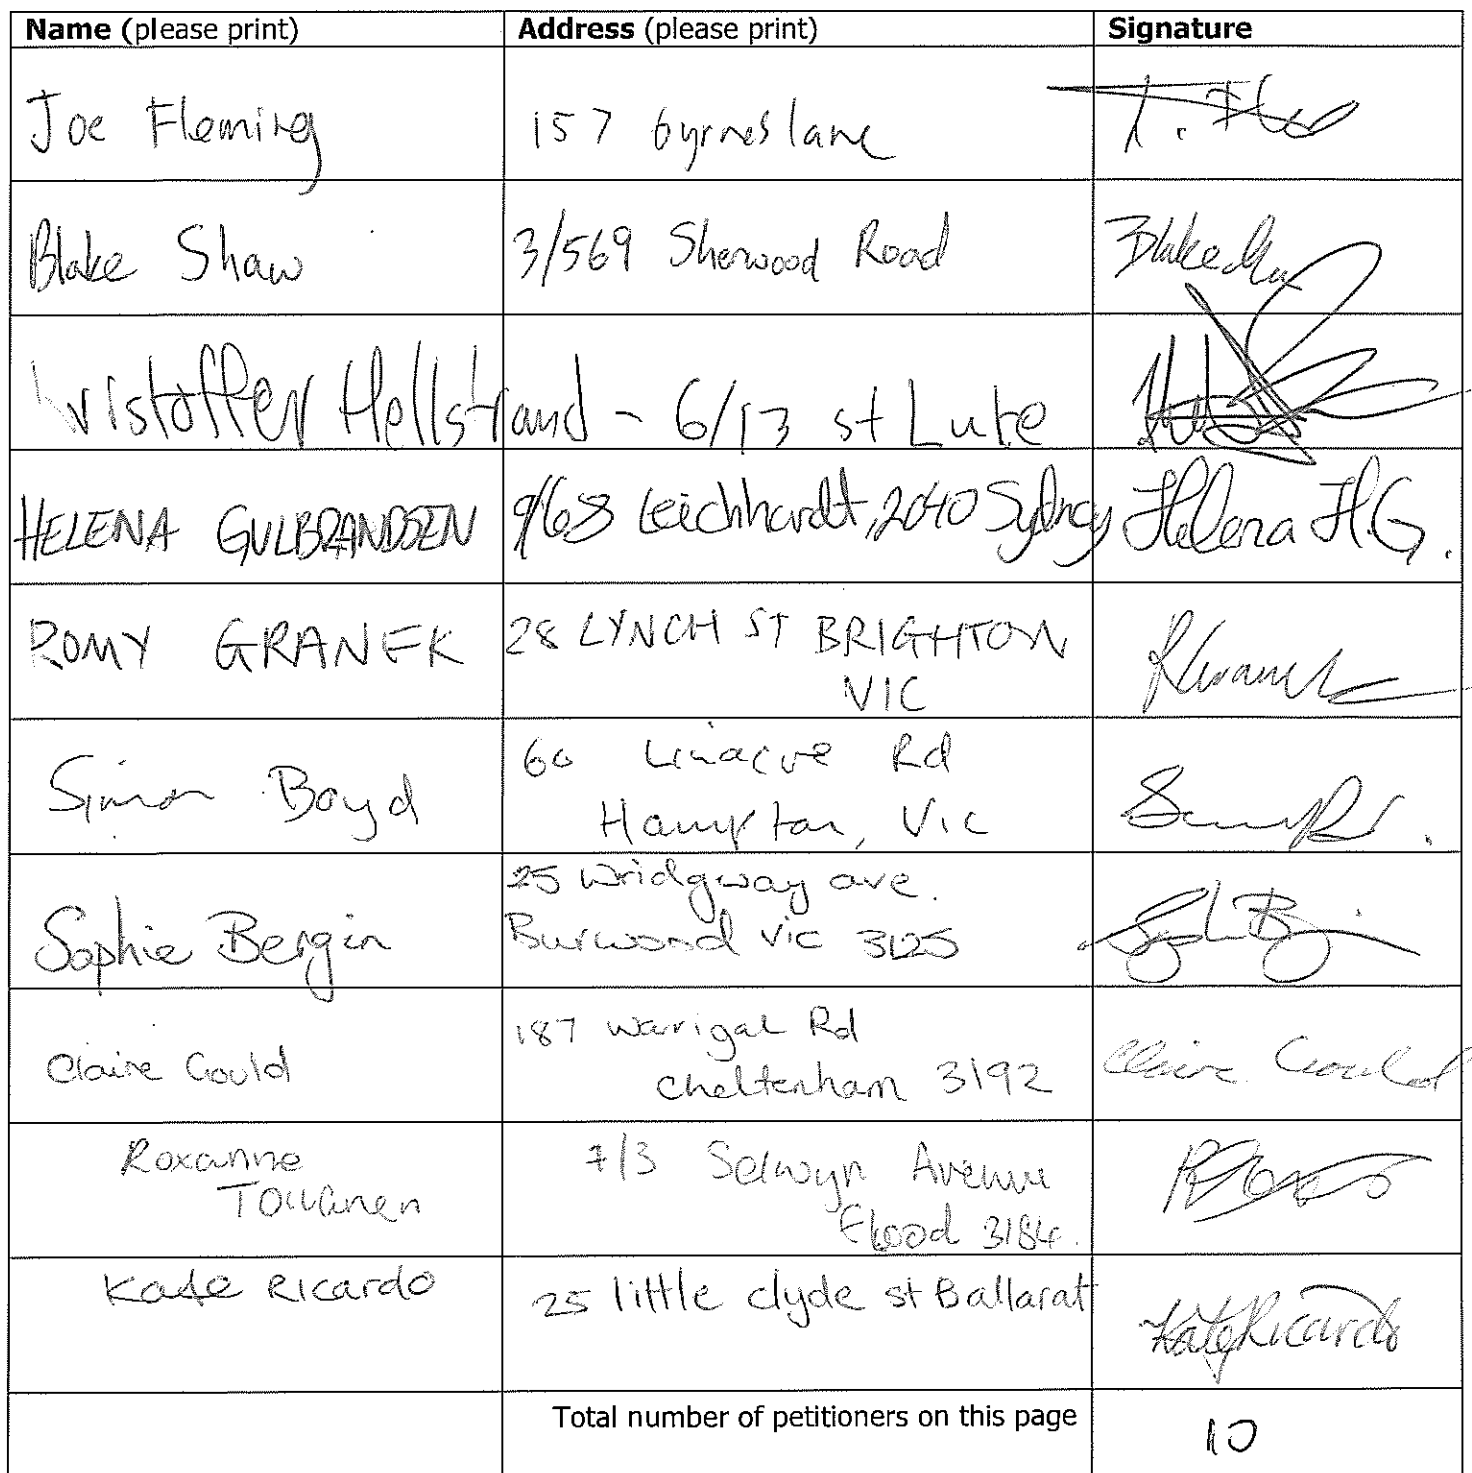 Name (please print) Address (please print) Signature
Joe Fleming 157 byrnes lane
Blake Shaw 3/569 Sherwood Road Blake Shaw
Kristoffer Hellstrand - 6/13 st Luke
HELENA GULBRANDSEN 9/68 Leichhardt, 2040 Sydney Helena H.G.
ROMY GRANEK 28 LYNCH ST BRIGHTON
VIC
Simon Boyd 60 Linacre Rd
Hampton, Vic
Sophie Bergin 25 Wridgway ave.
Burwood Vic 3125
Claire Gould 187 Warrigal Rd
Cheltenham 3192 Claire Gould
Roxanne 7/3 Selwyn Avenue
Elwood 3184.
Kate Ricardo 25 little clyde st Ballarat Kate Ricardo
Total number of petitioners on this page 10